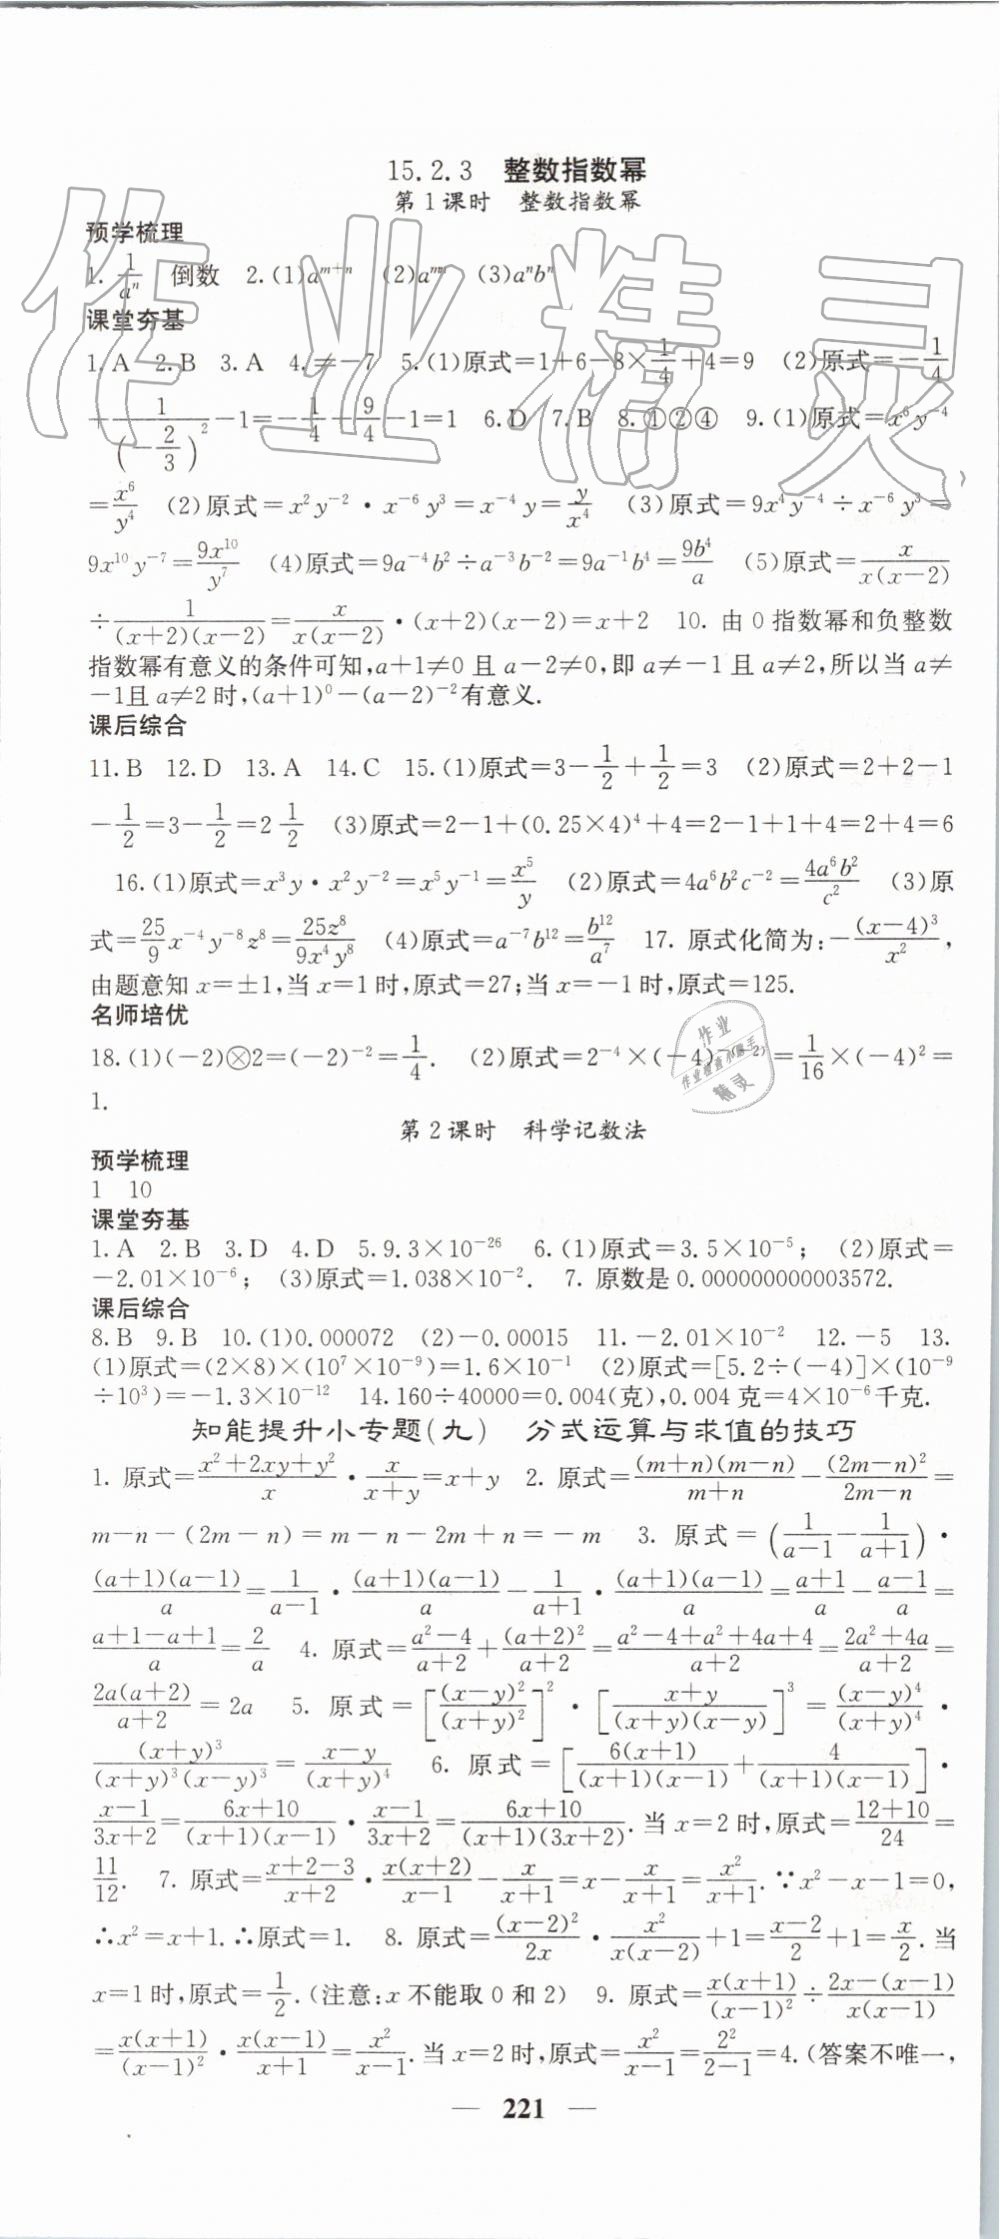 15.2.3 整数指数幂
第1课时 整数指数幂
预学梳理
1. \frac{1}{a^n} 倒数 2.(1)a^{m+n} (2)a^{mn} (3)a^n b^n
课堂夯基
1.A 2.B 3.A 4.≠-7 5.(1)原式=1+6-8×\frac{1}{4}+4=9 (2)原式=-\frac{1}{4}
+\frac{1}{(-\frac{2}{3})^2}-1=-\frac{1}{4}+\frac{9}{4}-1=1 6.D 7.B 8.①②④ 9.(1)原式=x^6y^{-4}
=\frac{x^6}{y^4} (2)原式=x^2y^{-2}·x^{-6}y^3=x^{-4}y=\frac{y}{x^4} (3)原式=9x^4y^{-4}÷x^{-6}y^3=
9x^{10}y^{-7}=\frac{9x^{10}}{y^7} (4)原式=9a^{-4}b^2÷a^{-3}b^{-2}=9a^{-1}b^4=\frac{9b^4}{a} (5)原式=\frac{x}{x(x-2)}
÷\frac{1}{(x+2)(x-2)}=\frac{x}{x(x-2)}·(x+2)(x-2)=x+2 10. 由0指数幂和负整数
指数幂有意义的条件可知,a+1≠0且a-2≠0,即a≠-1且a≠2,所以当a≠
-1且a≠2时,(a+1)^0-(a-2)^{-2}有意义.
课后综合
11.B 12.D 13.A 14.C 15.(1)原式=3-\frac{1}{2}+\frac{1}{2}=3 (2)原式=2+2-1
-\frac{1}{2}=3-\frac{1}{2}=2\frac{1}{2} (3)原式=2-1+(0.25×4)^4+4=2-1+1+4=2+4=6
16.(1)原式=x^3y·x^2y^{-2}=x^5y^{-1}=\frac{x^5}{y} (2)原式=4a^6b^2c^{-2}=\frac{4a^6b^2}{c^2} (3)原
式=\frac{25}{9}x^{-4}y^{-8}z^8=\frac{25z^8}{9x^4y^8} (4)原式=a^{-7}b^{12}=\frac{b^{12}}{a^7} 17. 原式化简为:-\frac{(x-4)^3}{x^2},
由题意知x=±1,当x=1时,原式=27;当x=-1时,原式=125.
名师培优
18.(1)(-2)⊗2=(-2)^{-2}=\frac{1}{4}. (2)原式=2^{-4}×(-4)^{-(-2)}=\frac{1}{16}×(-4)^2=
1.
第2课时 科学记数法
预学梳理
1 10
课堂夯基
1.A 2.B 3.D 4.D 5.9.3×10^{-26} 6.(1)原式=3.5×10^{-5}; (2)原式=
-2.01×10^{-6}; (3)原式=1.038×10^{-2}. 7. 原数是0.000000000003572.
课后综合
8.B 9.B 10.(1)0.000072 (2)-0.00015 11.-2.01×10^{-2} 12.-5 13.
(1)原式=(2×8)×(10^7×10^{-9})=1.6×10^{-1} (2)原式=[5.2÷(-4)]×(10^{-9}
÷10^3)=-1.3×10^{-12} 14.160÷40000=0.004(克),0.004克=4×10^{-6}千克.
知能提升小专题(九) 分式运算与求值的技巧
1. 原式=\frac{x^2+2xy+y^2}{x}·\frac{x}{x+y}=x+y 2. 原式=\frac{(m+n)(m-n)}{m+n}-\frac{(2m-n)^2}{2m-n}=
m-n-(2m-n)=m-n-2m+n=-m 3. 原式=(\frac{1}{a-1}-\frac{1}{a+1})·
\frac{(a+1)(a-1)}{a}=\frac{1}{a-1}·\frac{(a+1)(a-1)}{a}-\frac{1}{a+1}·\frac{(a+1)(a-1)}{a}=\frac{a+1}{a}-\frac{a-1}{a}=
\frac{a+1-a+1}{a}=\frac{2}{a} 4. 原式=\frac{a^2-4}{a+2}+\frac{(a+2)^2}{a+2}=\frac{a^2-4+a^2+4a+4}{a+2}=\frac{2a^2+4a}{a+2}=
\frac{2a(a+2)}{a+2}=2a 5. 原式=[\frac{(x-y)^2}{(x+y)^2}]^2·[\frac{x+y}{(x+y)(x-y)}]^3=\frac{(x-y)^4}{(x+y)^4}·
\frac{(x+y)^3}{(x+y)^3(x-y)^3}=\frac{x-y}{(x+y)^4} 6. 原式=[\frac{6(x+1)}{(x+1)(x-1)}+\frac{4}{(x+1)(x-1)}]·
\frac{x-1}{3x+2}=\frac{6x+10}{(x+1)(x-1)}·\frac{x-1}{3x+2}=\frac{6x+10}{(x+1)(3x+2)}.当x=2时,原式=\frac{12+10}{24}=
\frac{11}{12}. 7. 原式=\frac{x+2-3}{x+2}·\frac{x(x+2)}{x-1}-\frac{x}{x+1}=x-\frac{x}{x+1}=\frac{x^2}{x+1}.∵x^2-x-1=0,
∴x^2=x+1.∴原式=1. 8. 原式=\frac{(x-2)^2}{2x}·\frac{x^2}{x(x-2)}+1=\frac{x-2}{2}+1=\frac{x}{2}.当
x=1时,原式=\frac{1}{2}.(注意:x不能取0和2) 9. 原式=\frac{x(x+1)}{(x-1)^2}÷\frac{2x-(x-1)}{x(x-1)}
=\frac{x(x+1)}{(x-1)^2}·\frac{x(x-1)}{x+1}=\frac{x^2}{x-1}.当x=2时,原式=\frac{x^2}{x-1}=\frac{2^2}{2-1}=4.(答案不唯一,
— 221 —
作业精灵